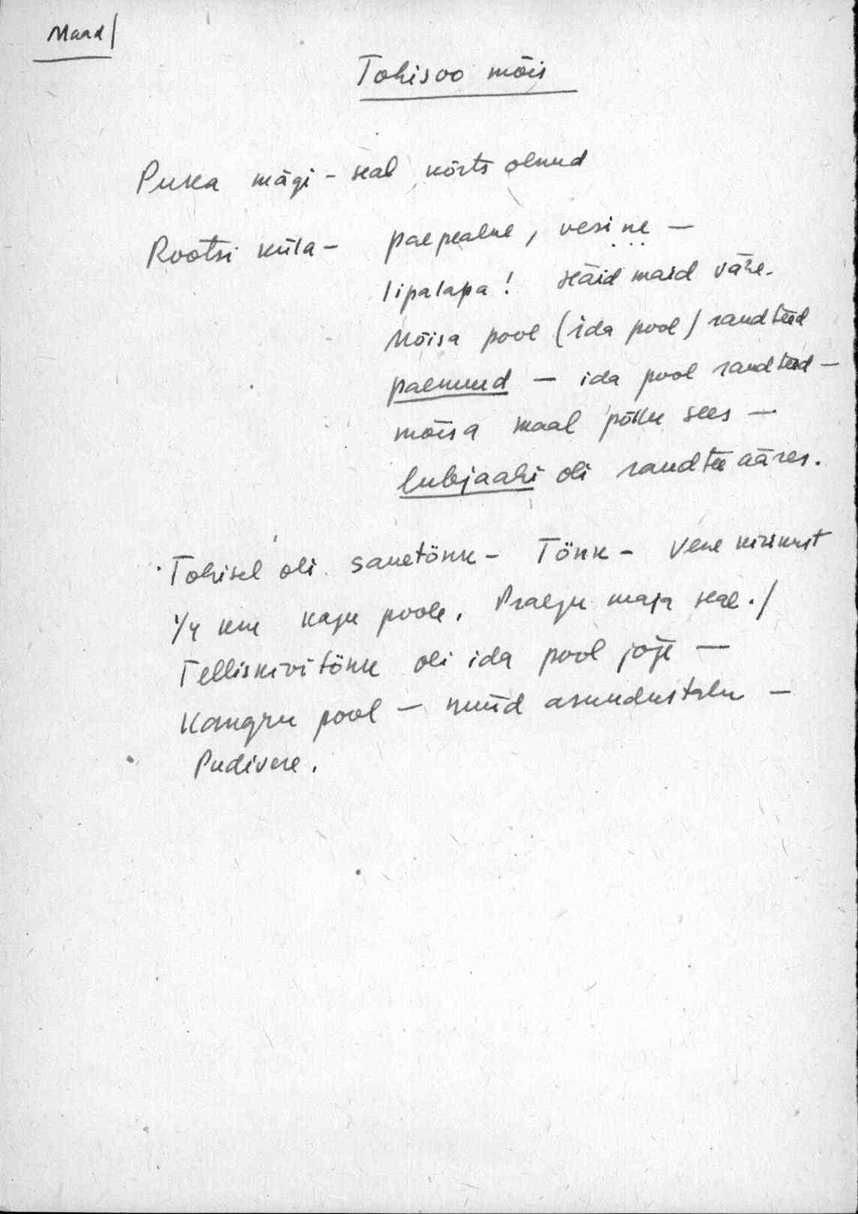 Maad/
Tohisoo mõis
Puka mägi - seal kõrts olnud
Rootsi küla - paepealne, vesine -
lipalapa! Häid maid vähe.
Mõisa pool (ida pool) raudteed
paemurd - ida pool raudteed -
mõisa maal põllu sees -
lubjaahi oli raudtee ääres.
Tohisel oli savetönk - Tönk - Vene kirikust
1/4 km kagu poole. Praegu maja seal./
Telliskivitönk oli ida pool jõge -
Kangru pool - nüüd asundustalu -
Pudivere.